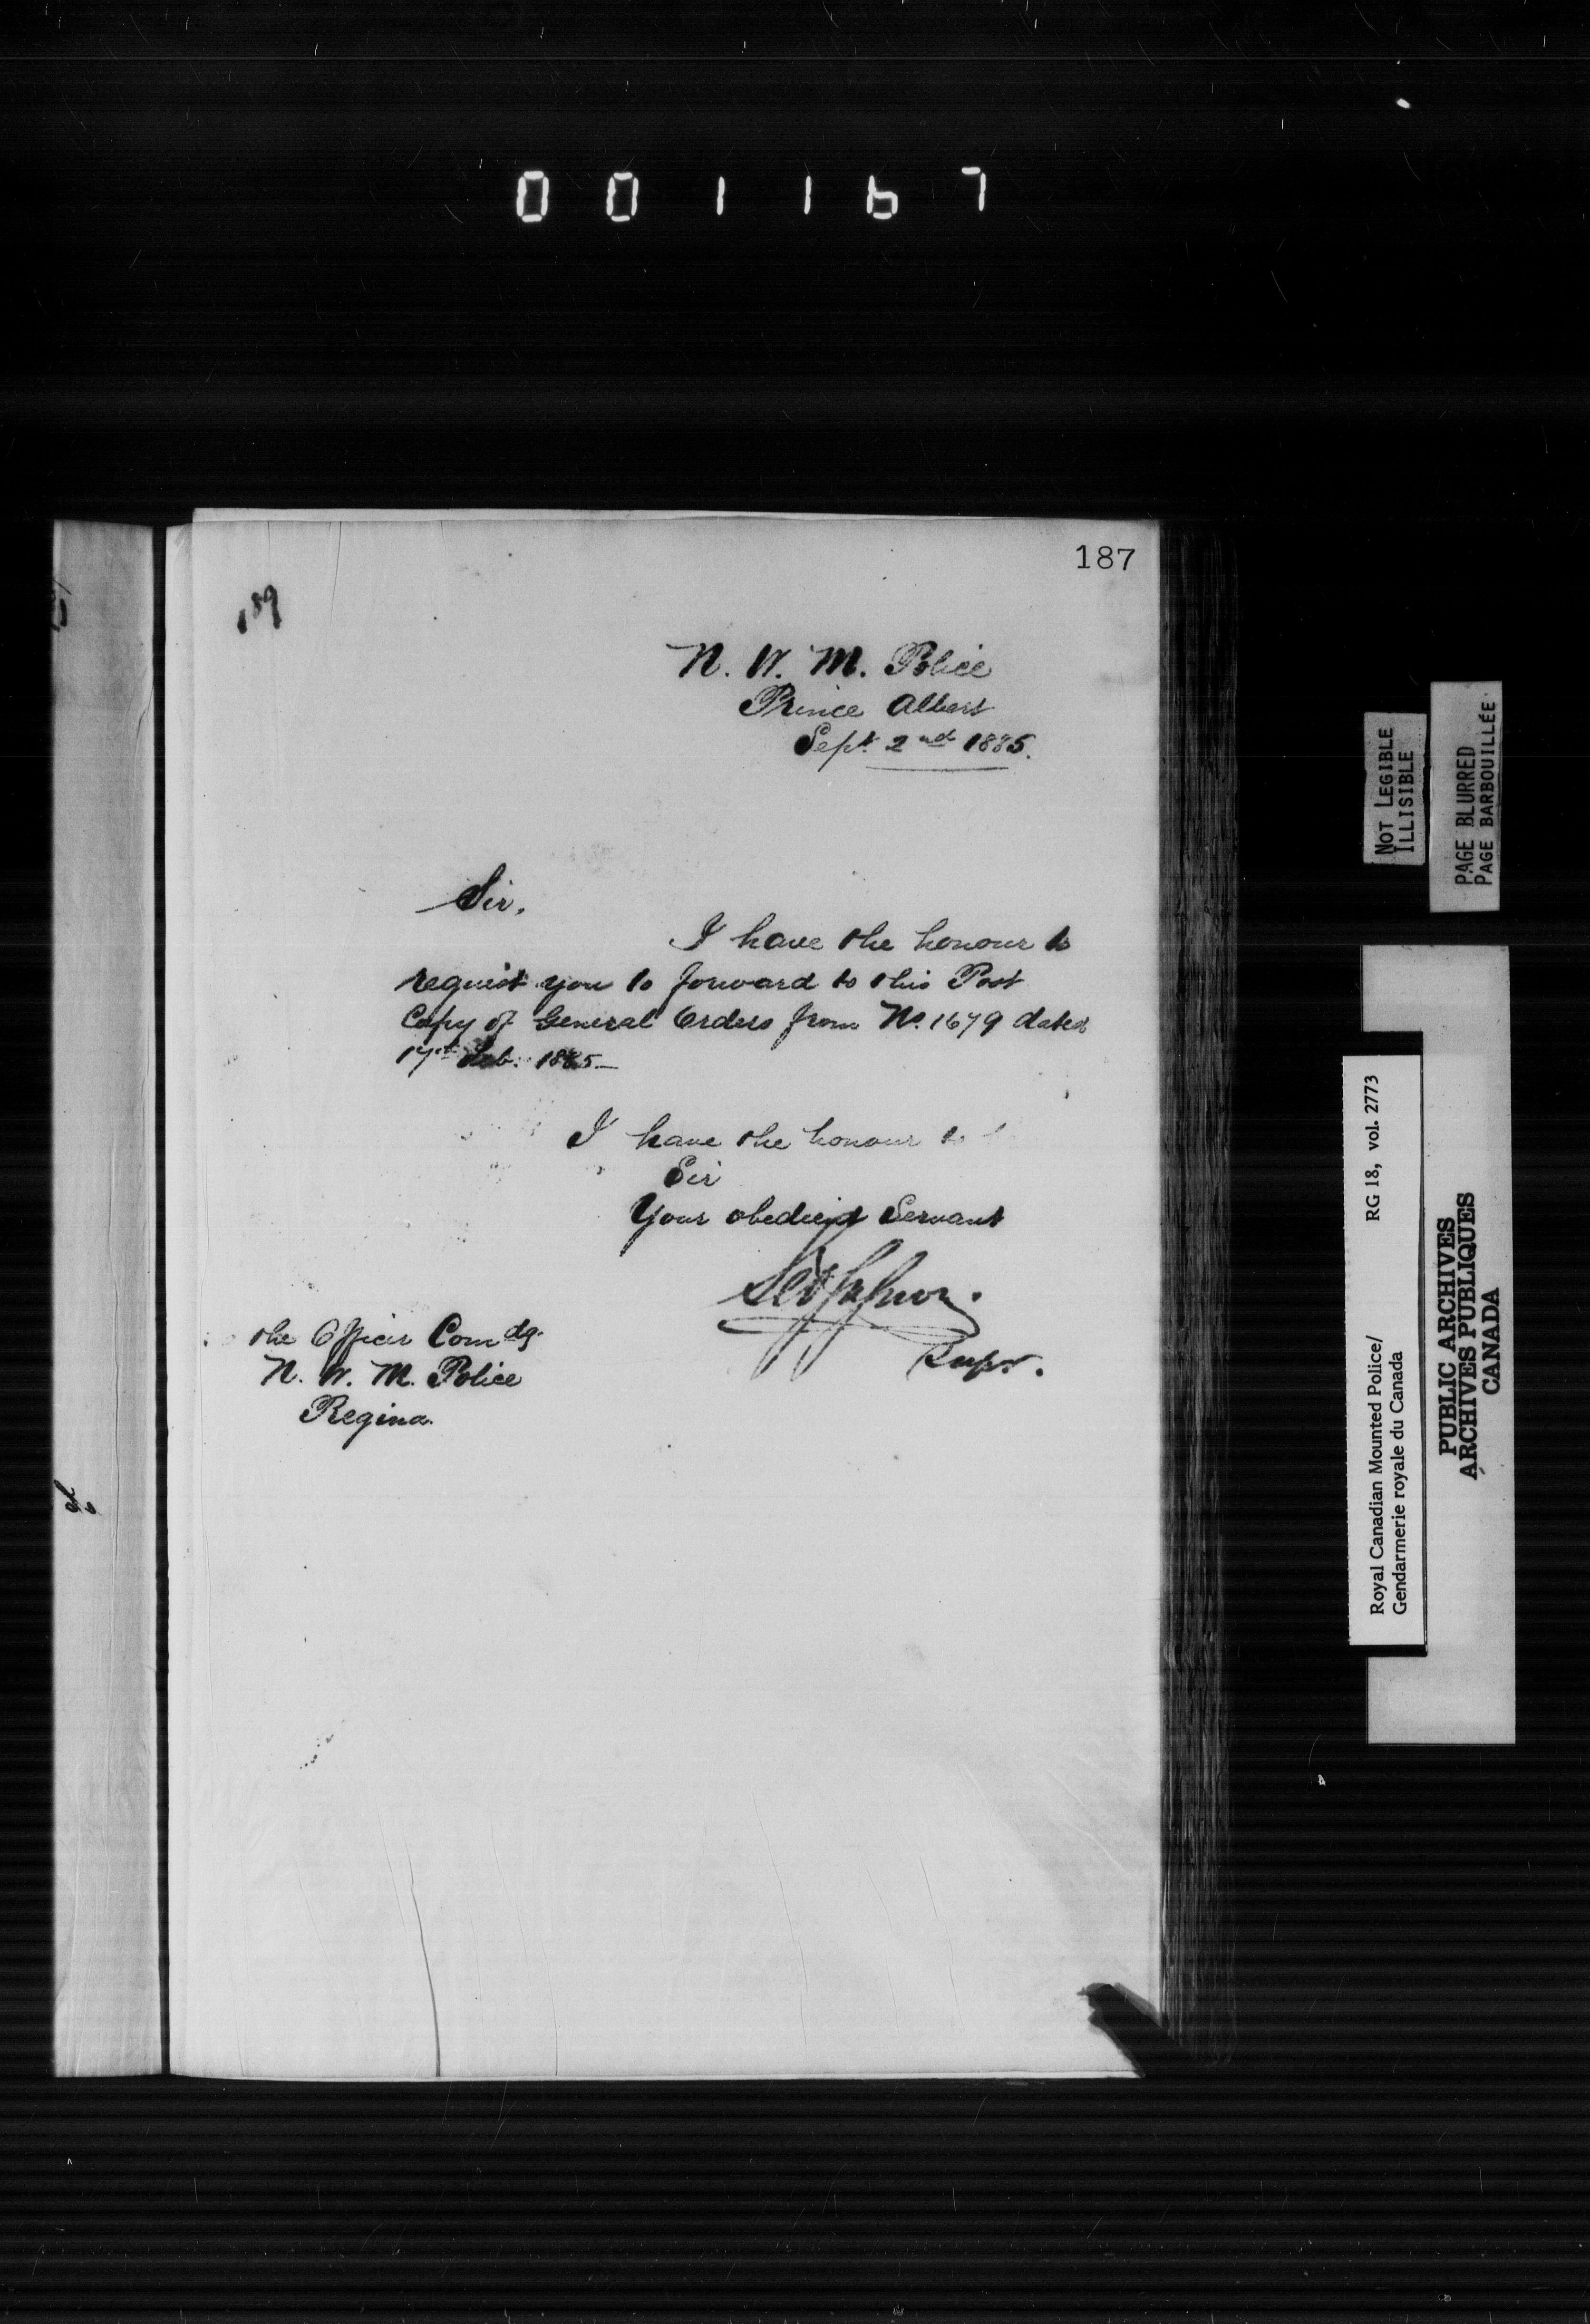 001167
187
189
N. W. M. Police
Prince Albert
Sept. 2nd 1885.
Sir,
I have the honour to
request you to forward to this Post
Copy of General Orders from No. 1679 dated
17th Feb. 1885—
I have the honour to
Sir
Your obedient Servant
Supt.
The Officer Comdg.
N. W. M. Police
Regina.
NOT LEGIBLE
ILLISIBLE
PAGE BLURRED
PAGE BARBOUILLÉE
Royal Canadian Mounted Police/ RG 18, vol. 2773
Gendarmerie royale du Canada
PUBLIC ARCHIVES
ARCHIVES PUBLIQUES
CANADA